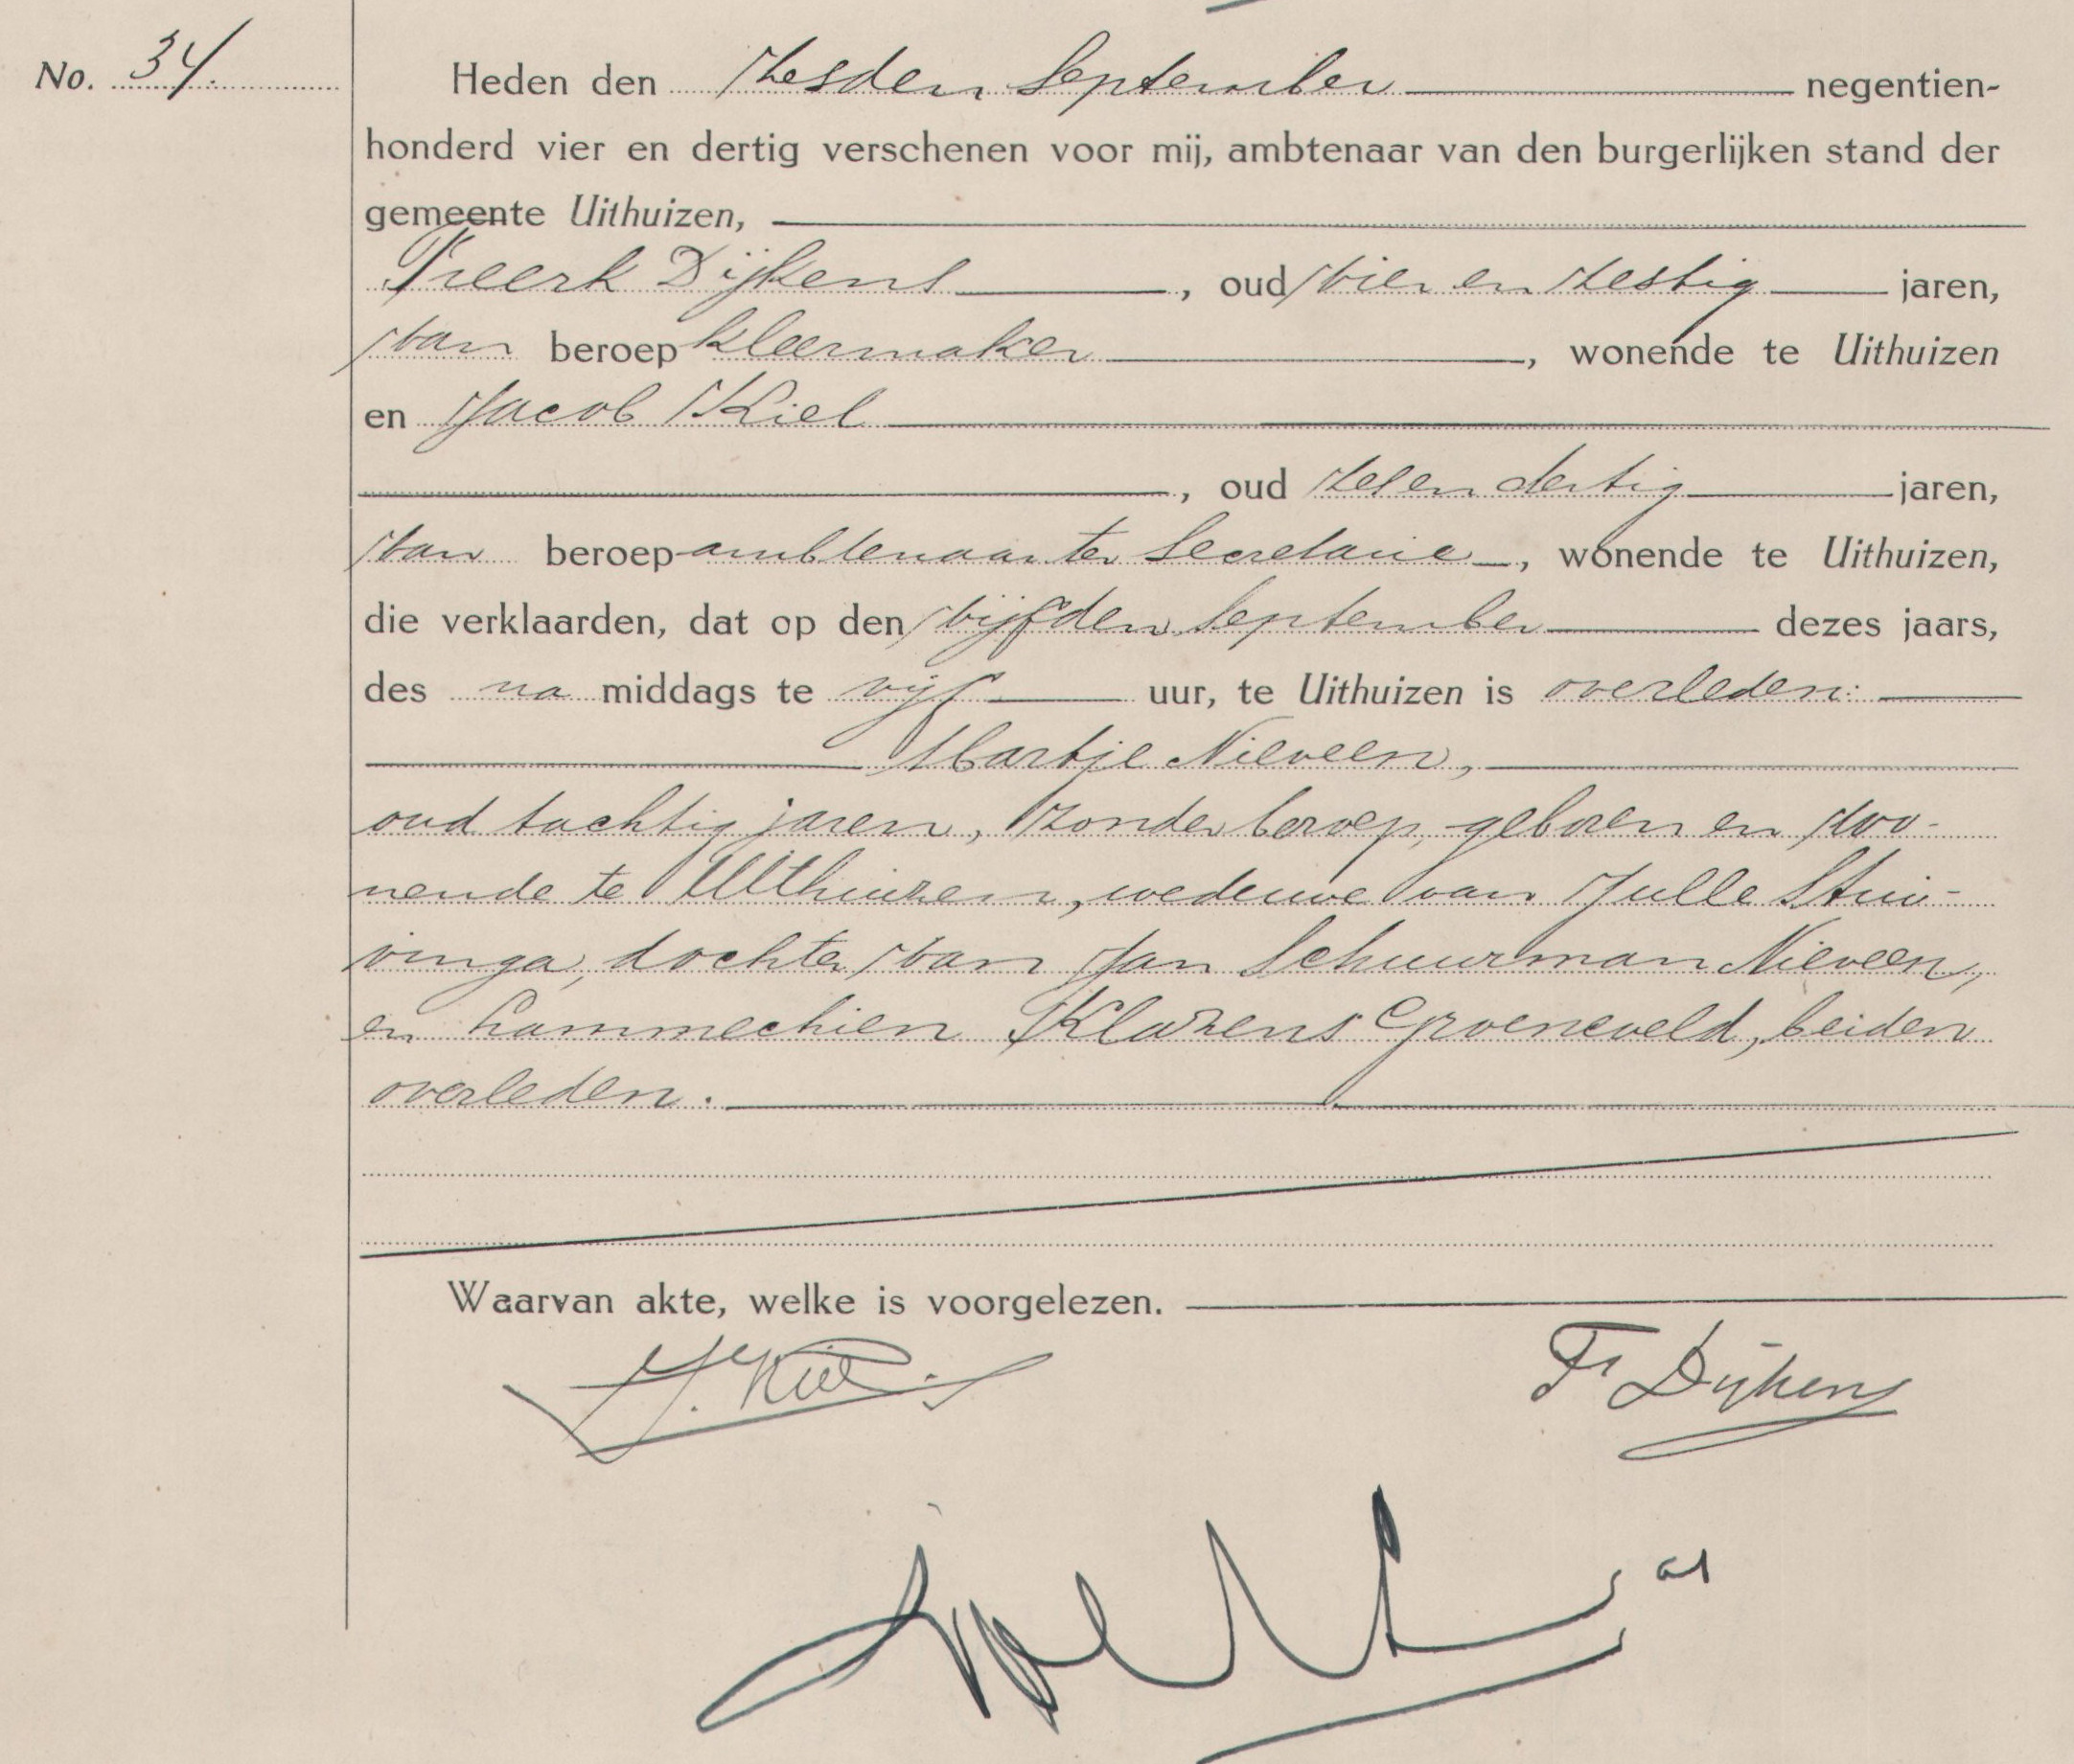 No. 34.
Heden den zesden September negentien-
honderd vier en dertig verschenen voor mij, ambtenaar van den burgerlijken stand der
gemeente Uithuizen,
Freerk Dijkens, oud vier en zestig jaren,
van beroep kleermaker, wonende te Uithuizen
en Jacob Kiel
, oud zes en dertig jaren,
van beroep ambtenaar ter secretarie, wonende te Uithuizen,
die verklaarden, dat op den vijfden September dezes jaars,
des na middags te vijf uur, te Uithuizen is overleden:
Martje Nieveen,
oud tachtig jaren, zonder beroep, geboren en wo-
nende te Uithuizen, weduwe van Julle Stui-
vinga, dochter van Jan Schuurman Nieveen,
en Hammechien Klazens Groeneveld, beiden
overleden.
Waarvan akte, welke is voorgelezen.
J. Kiel. Fr Dijkens